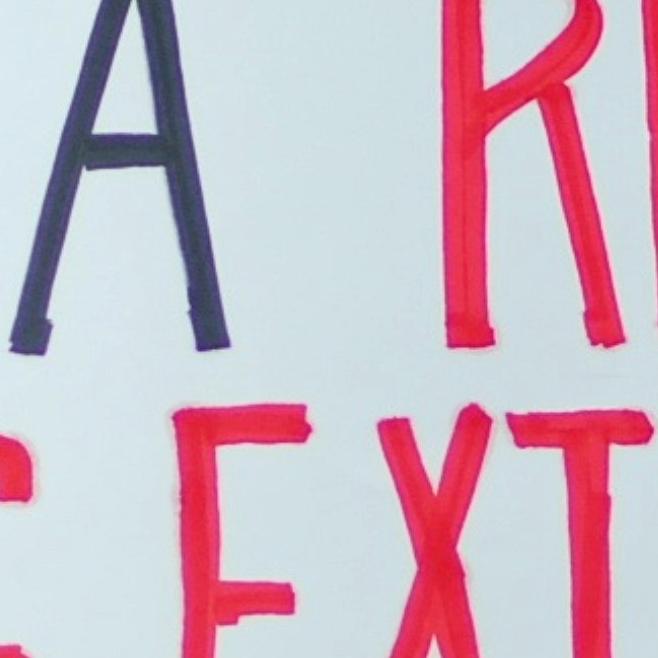 A R
EXT